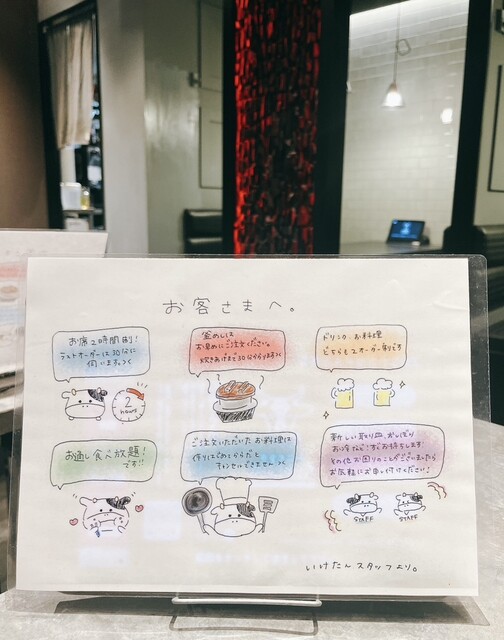 お客さまへ。
お席2時間制!
ラストオーダーは30分前に
伺います。
2
hours
釜めしは
お早めにご注文ください。
炊きあげまで30分かかります
ドリンク、お料理
どちらも2オーダー制です
お通し食べ放題!
です!!
ご注文いただいたお料理は
作りはじめてからだと
キャンセルできません
新しい取り皿、おしぼり
お冷など!すぐお持ちします
その他お困りのことがございましたら
お気軽にお申し付けください!
STAFF
STAFF
いけたんスタッフより。